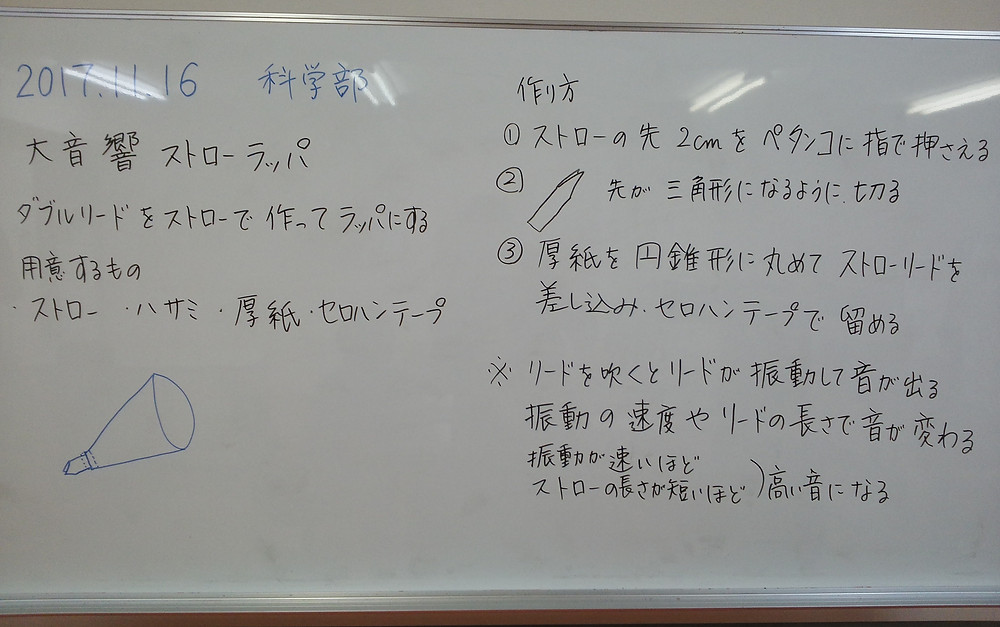 2017.11.16 科学部
大音響 ストローラッパ
ダブルリードをストローで作ってラッパにする
用意するもの
・ストロー ・ハサミ ・厚紙 ・セロハンテープ
作り方
① ストローの先 2cmを ペタンコに指で押さえる
② 先が三角形になるように切る
③ 厚紙を円錐形に丸めて ストローリードを
差し込み、セロハンテープで留める
※ リードを吹くとリードが振動して音が出る
振動の速度やリードの長さで音が変わる
振動が速いほど
ストローの長さが短いほど ) 高い音になる